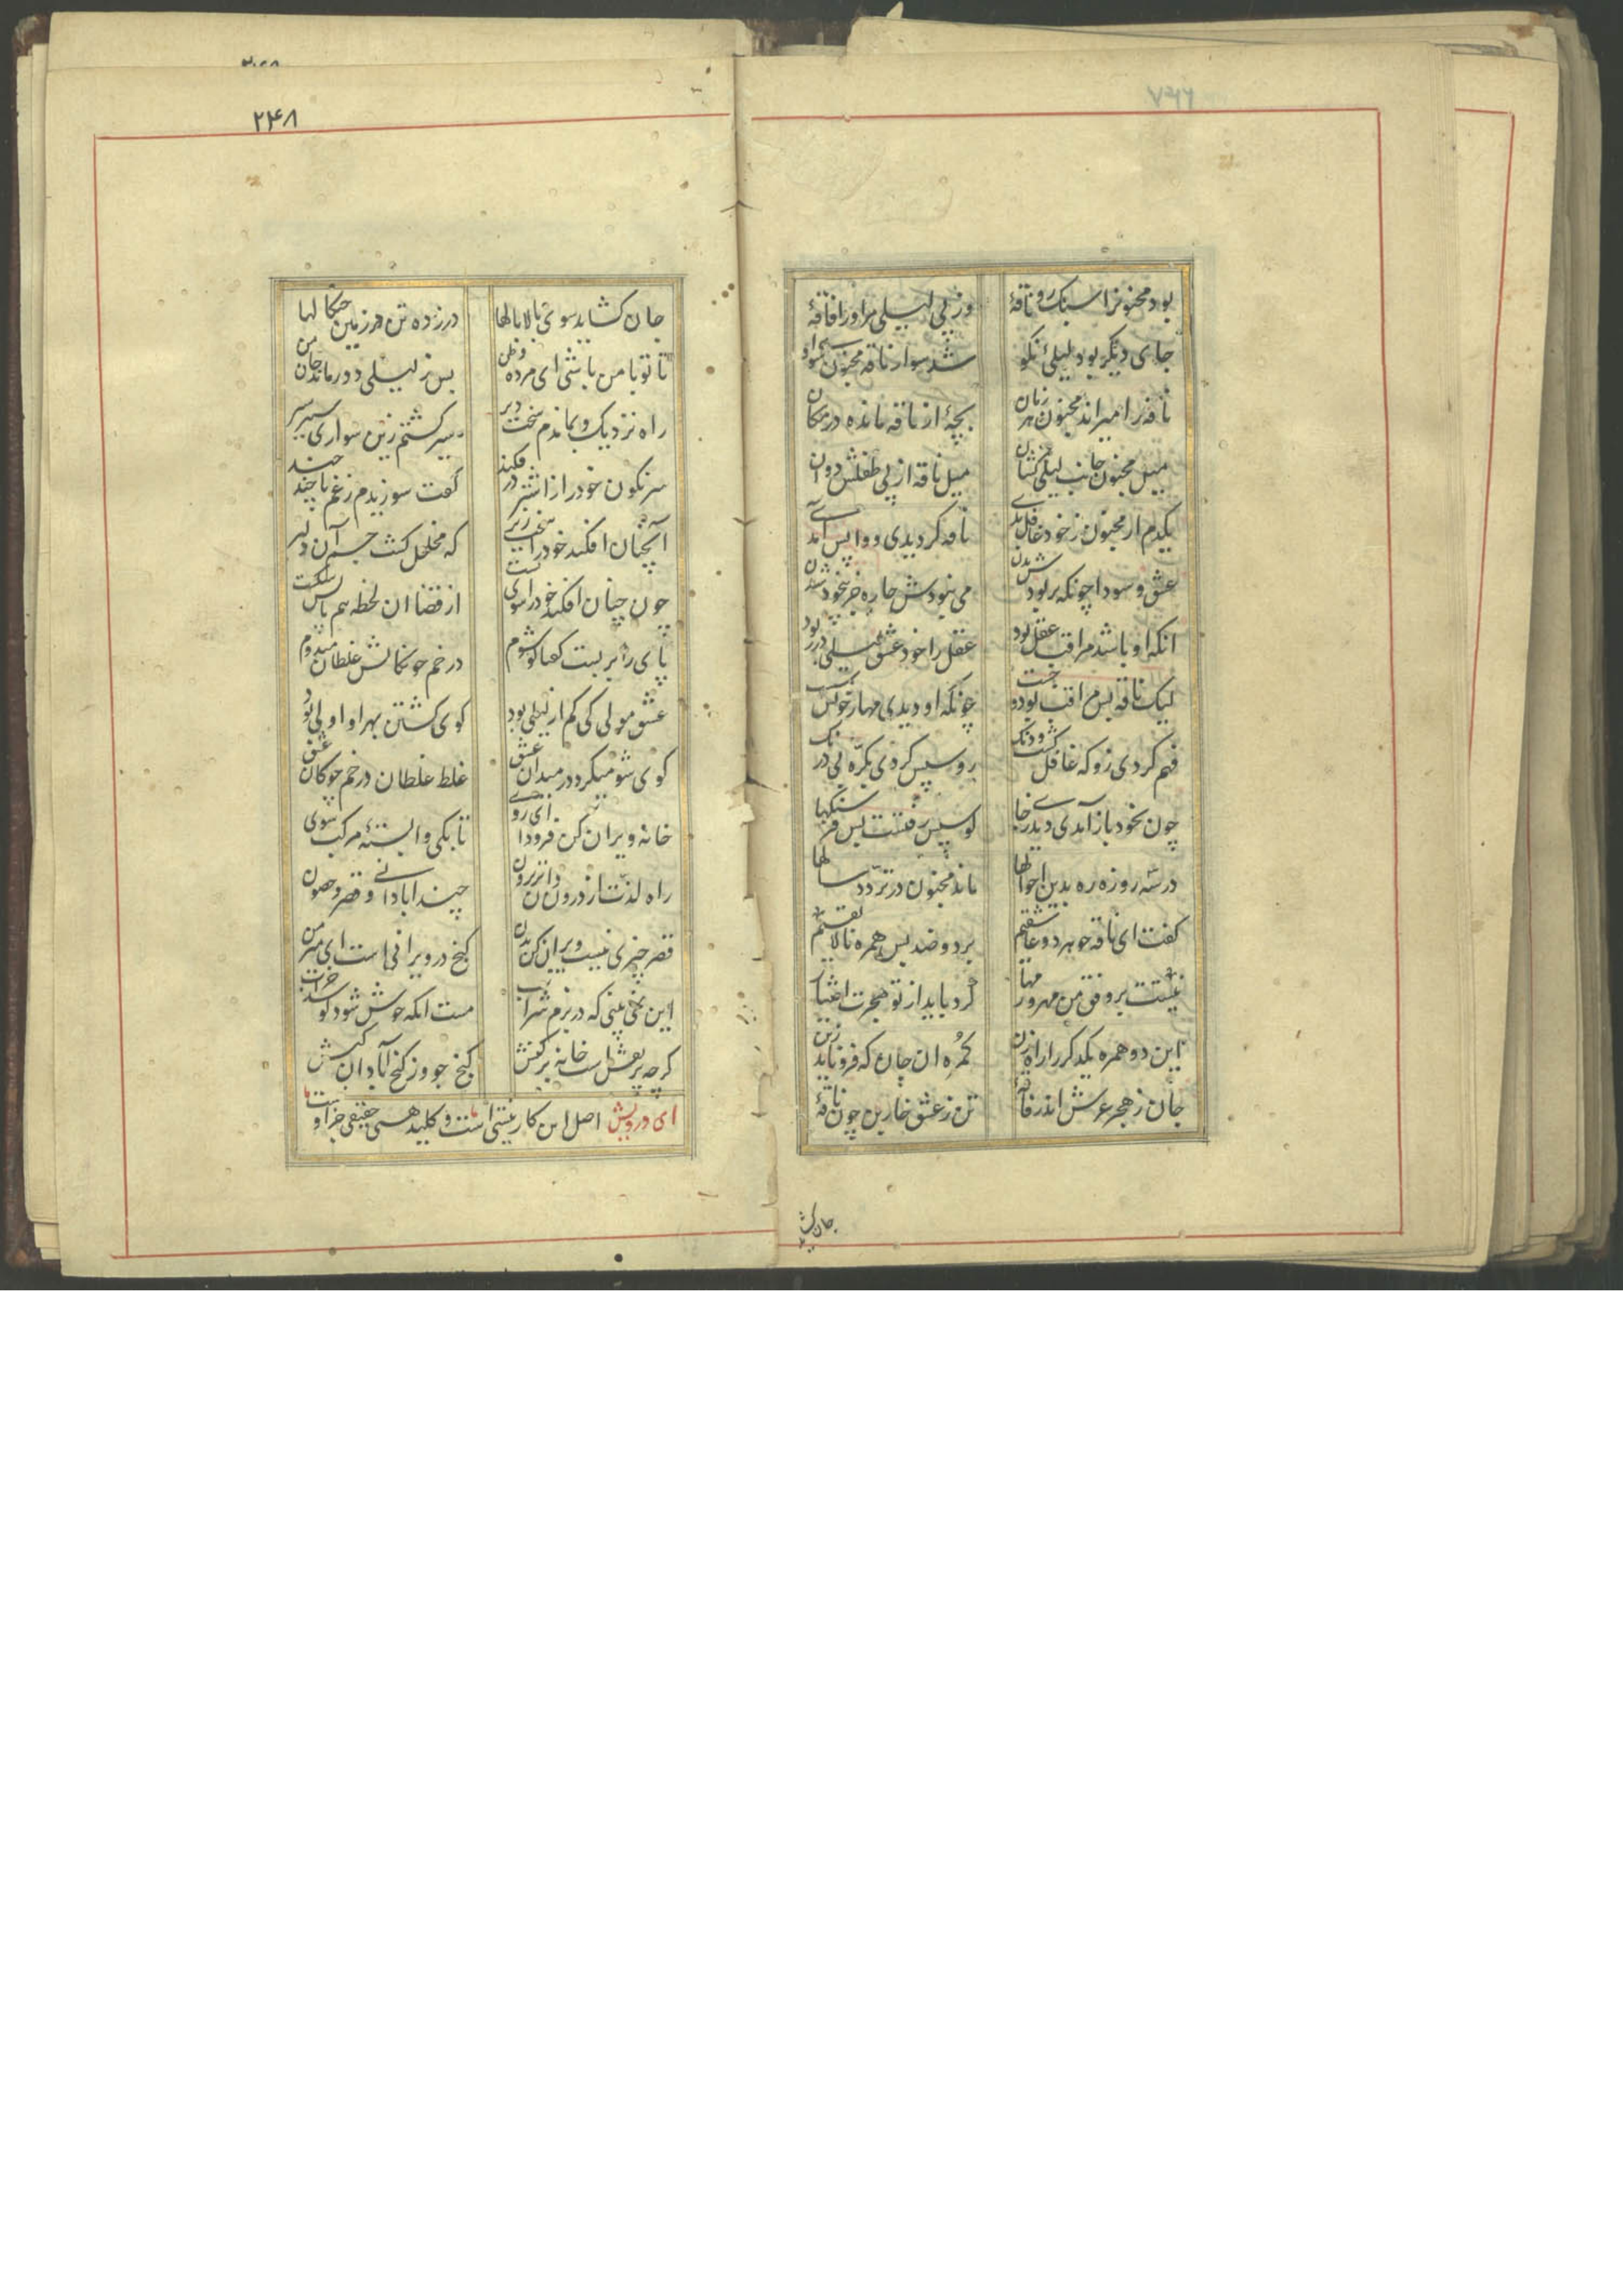 بود مجنونرا سبک رو ناقهٔ
وز پی لیلی مر او را فاقهٔ
جای دیگر بود لیلیٔ نکو
شد سوار ناقه مجنون سوی او
ناقه را میراند مجنون هر زمان
بچهٔ از ناقه مانده در مکان
میل مجنون جانب لیلی کشان
میل ناقه از پی طفلش دوان
یکدم ار مجنون ز خود غافل بدی
ناقه گردیدی و واپس آمدی
عشق و سودا چونکه پر بودش بدن
می نبودش چاره جز بیخود شدن
انکه او باشد مراقب عقل بود
عقل را خود عشق لیلی در ربود
لیک ناقه بس مراقب بود و چست
چونکه او دیدی مهار خویش سست
فهم کردی زو که غافل گشت و دنگ
رو سپس کردی بکرّه بی درنگ
چون بخود باز آمدی دیدی ز جا
کو سپس رفتست بس فرسنگها
در سه روزه ره بدین احوالها
ماند مجنون در تردّد سالها
گفت ای ناقه چو هر دو عاشقیم
بر دو ضد بس همره نالایقیم
نیستت بر وفق من مهر و مهار
کرد باید از تو هجرت اختیار
این دو همره یکدگر را راه زن
گمره ان جان که فرو ناید ز تن
جان ز هجر عرش اندر فاقهٔ
تن ز عشق خاربن چون ناقهٔ
جان کش
۲۴۸
جان گشاید سوی بالا بالها
در زده تن در زمین چنگالها
تا تو با من باشی ای مرده وطن
بس ز لیلی دور ماند جان من
راه نزدیک و بماندم سخت دیر
سیر گشتم زین سواری سیر سیر
سرنگون خود را از اشتر در فکند
گفت سوزیدم ز غم تا چند چند
آنچنان افکند خود را سخت زیر
که مخلخل گشت جسم آن دلیر
چون چنان افکند خود را سوی پست
از قضا ان لحظه هم پایش شکست
پای را بر بست گفتا گو شوم
در خم چوگانش غلطان میدوم
عشق مولی کی کم از لیلی بود
گوی گشتن بهر او اولی بود
گوی شو میگرد در میدان عشق
غلط غلطان در خم چوگان عشق
خانه ویران کن فرود ای رو
تا بکی وابستهٔ مرکب سوی
راه لذت از درون دان نز برون
چند ابادانی و قصر و حصون
قصر چیزی نیست ویران کن بدن
گنج در ویرانی است ای میر من
این نمی بینی که در بزم شراب
مست انکه خوش شود کو شد خراب
گرچه پر نقش است خانه بر کنش
گنج جو وز گنج آبادان کنش
ای درویش اصل این کار نیستی است و کلید هستی حقیقی جز او نیست